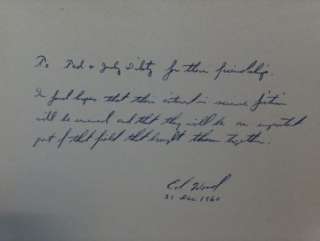 To Ted & Judy Dikty for their friendship.
In fond hopes that their interest in science fiction
will be renewed and that they will be an important
part of that field that brought them together.
Ed Wood
31 Dec 1960